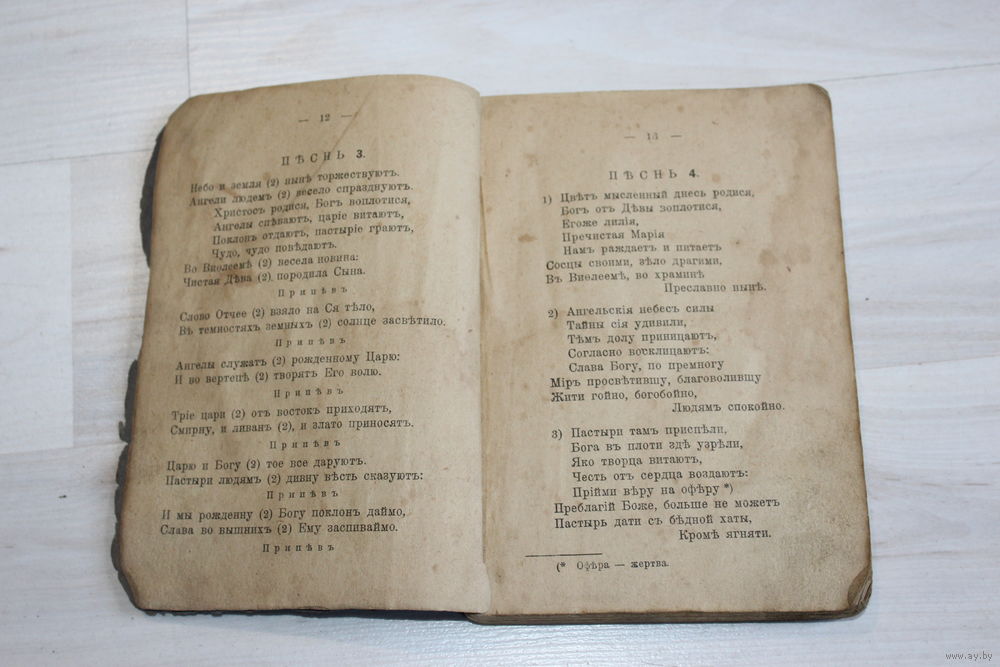 — 12 —
ПѢСНЬ 3.
Небо и земля (2) нынѣ торжествуютъ.
Ангели людемъ (2) весело спразднуютъ.
Христосъ родися, Богъ воплотися,
Ангелы спѣваютъ, царіе витаютъ,
Поклонъ отдаютъ, пастыріе граютъ,
Чудо, чудо повѣдаютъ.
Во Виѳлеемѣ (2) весела новина:
Чистая Дѣва (2) породила Сына.
Припѣвъ
Слово Отчее (2) взяло на Ся тѣло,
Въ темностяхъ земныхъ (2) солнце засвѣтило.
Припѣвъ
Ангелы служатъ (2) рожденному Царю:
И во вертепѣ (2) творятъ Его волю.
Припѣвъ
Тріе цари (2) отъ востокъ приходятъ,
Смирну, и ливанъ (2), и злато приносятъ.
Припѣвъ
Царю и Богу (2) тое все даруютъ.
Пастыри людямъ (2) дивну вѣсть сказуютъ:
Припѣвъ
И мы рожденну (2) Богу поклон даймо,
Слава во вышнихъ (2) Ему заспиваймо.
Припѣвъ
— 13 —
ПѢСНЬ 4.
1) Цвѣтъ мысленный днесь родися,
Богъ отъ Дѣвы воплотися,
Егоже лилія,
Пречистая Марія
Намъ раждаетъ и питаетъ
Сосцы своими, зѣло драгими,
Въ Виѳлеемѣ, во храминѣ
Преславно нынѣ.
2) Ангельскія небесъ силы
Тайны сія удивили,
Тѣмъ долу приницаютъ,
Согласно восклицаютъ:
Слава Богу, по премногу
Міръ просвѣтившу, благоволившу
Жити гойно, богобойно,
Людямъ спокойно.
3) Пастыри тамъ приспѣли,
Бога въ плоти здѣ узрѣли,
Яко творца витаютъ,
Честь отъ сердца воздаютъ:
Прійми вѣру на офѣру *)
Преблагій Боже, больше не можетъ
Пастырь дати съ бѣдной хаты,
Кромѣ ягняти.
(* Офѣра — жертва.
www.ay.by